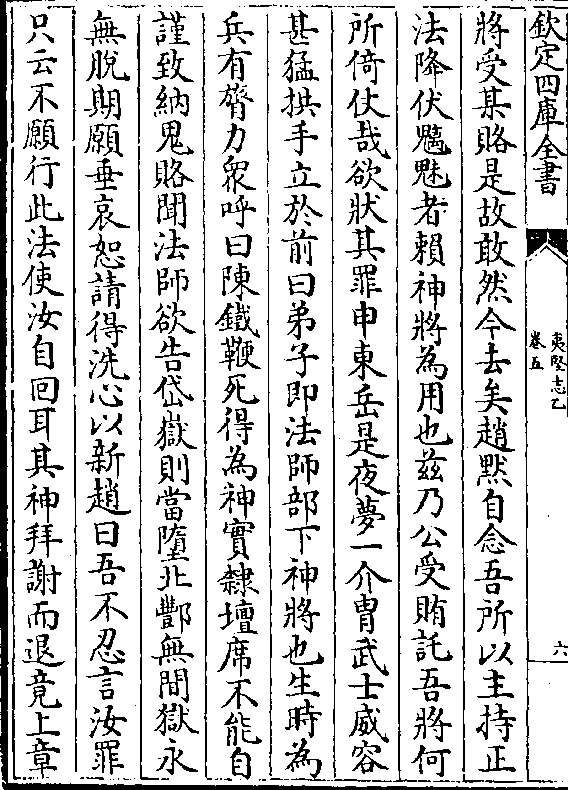 欽定四庫全書
夷堅志乙
卷五
六
將受某賂是故敢然今去矣趙黙自念吾所以主持正
法降伏魑魅者賴神將為用也兹乃公受賄託吾將何
所倚仗哉欲狀其罪申東岳是夜夢一介胄武士威容
甚猛拱手立於前曰弟子即法師部下神將也生時為
兵有膂力衆呼曰陳鐵鞭死得為神實隸壇席不能自
謹致納鬼賂聞法師欲告岱嶽則當墮北酆無間獄永
無脫期願垂哀恕請得洗心以新趙曰吾不忍言汝罪
只云不願行此法使汝自回耳其神拜謝而退竟上章